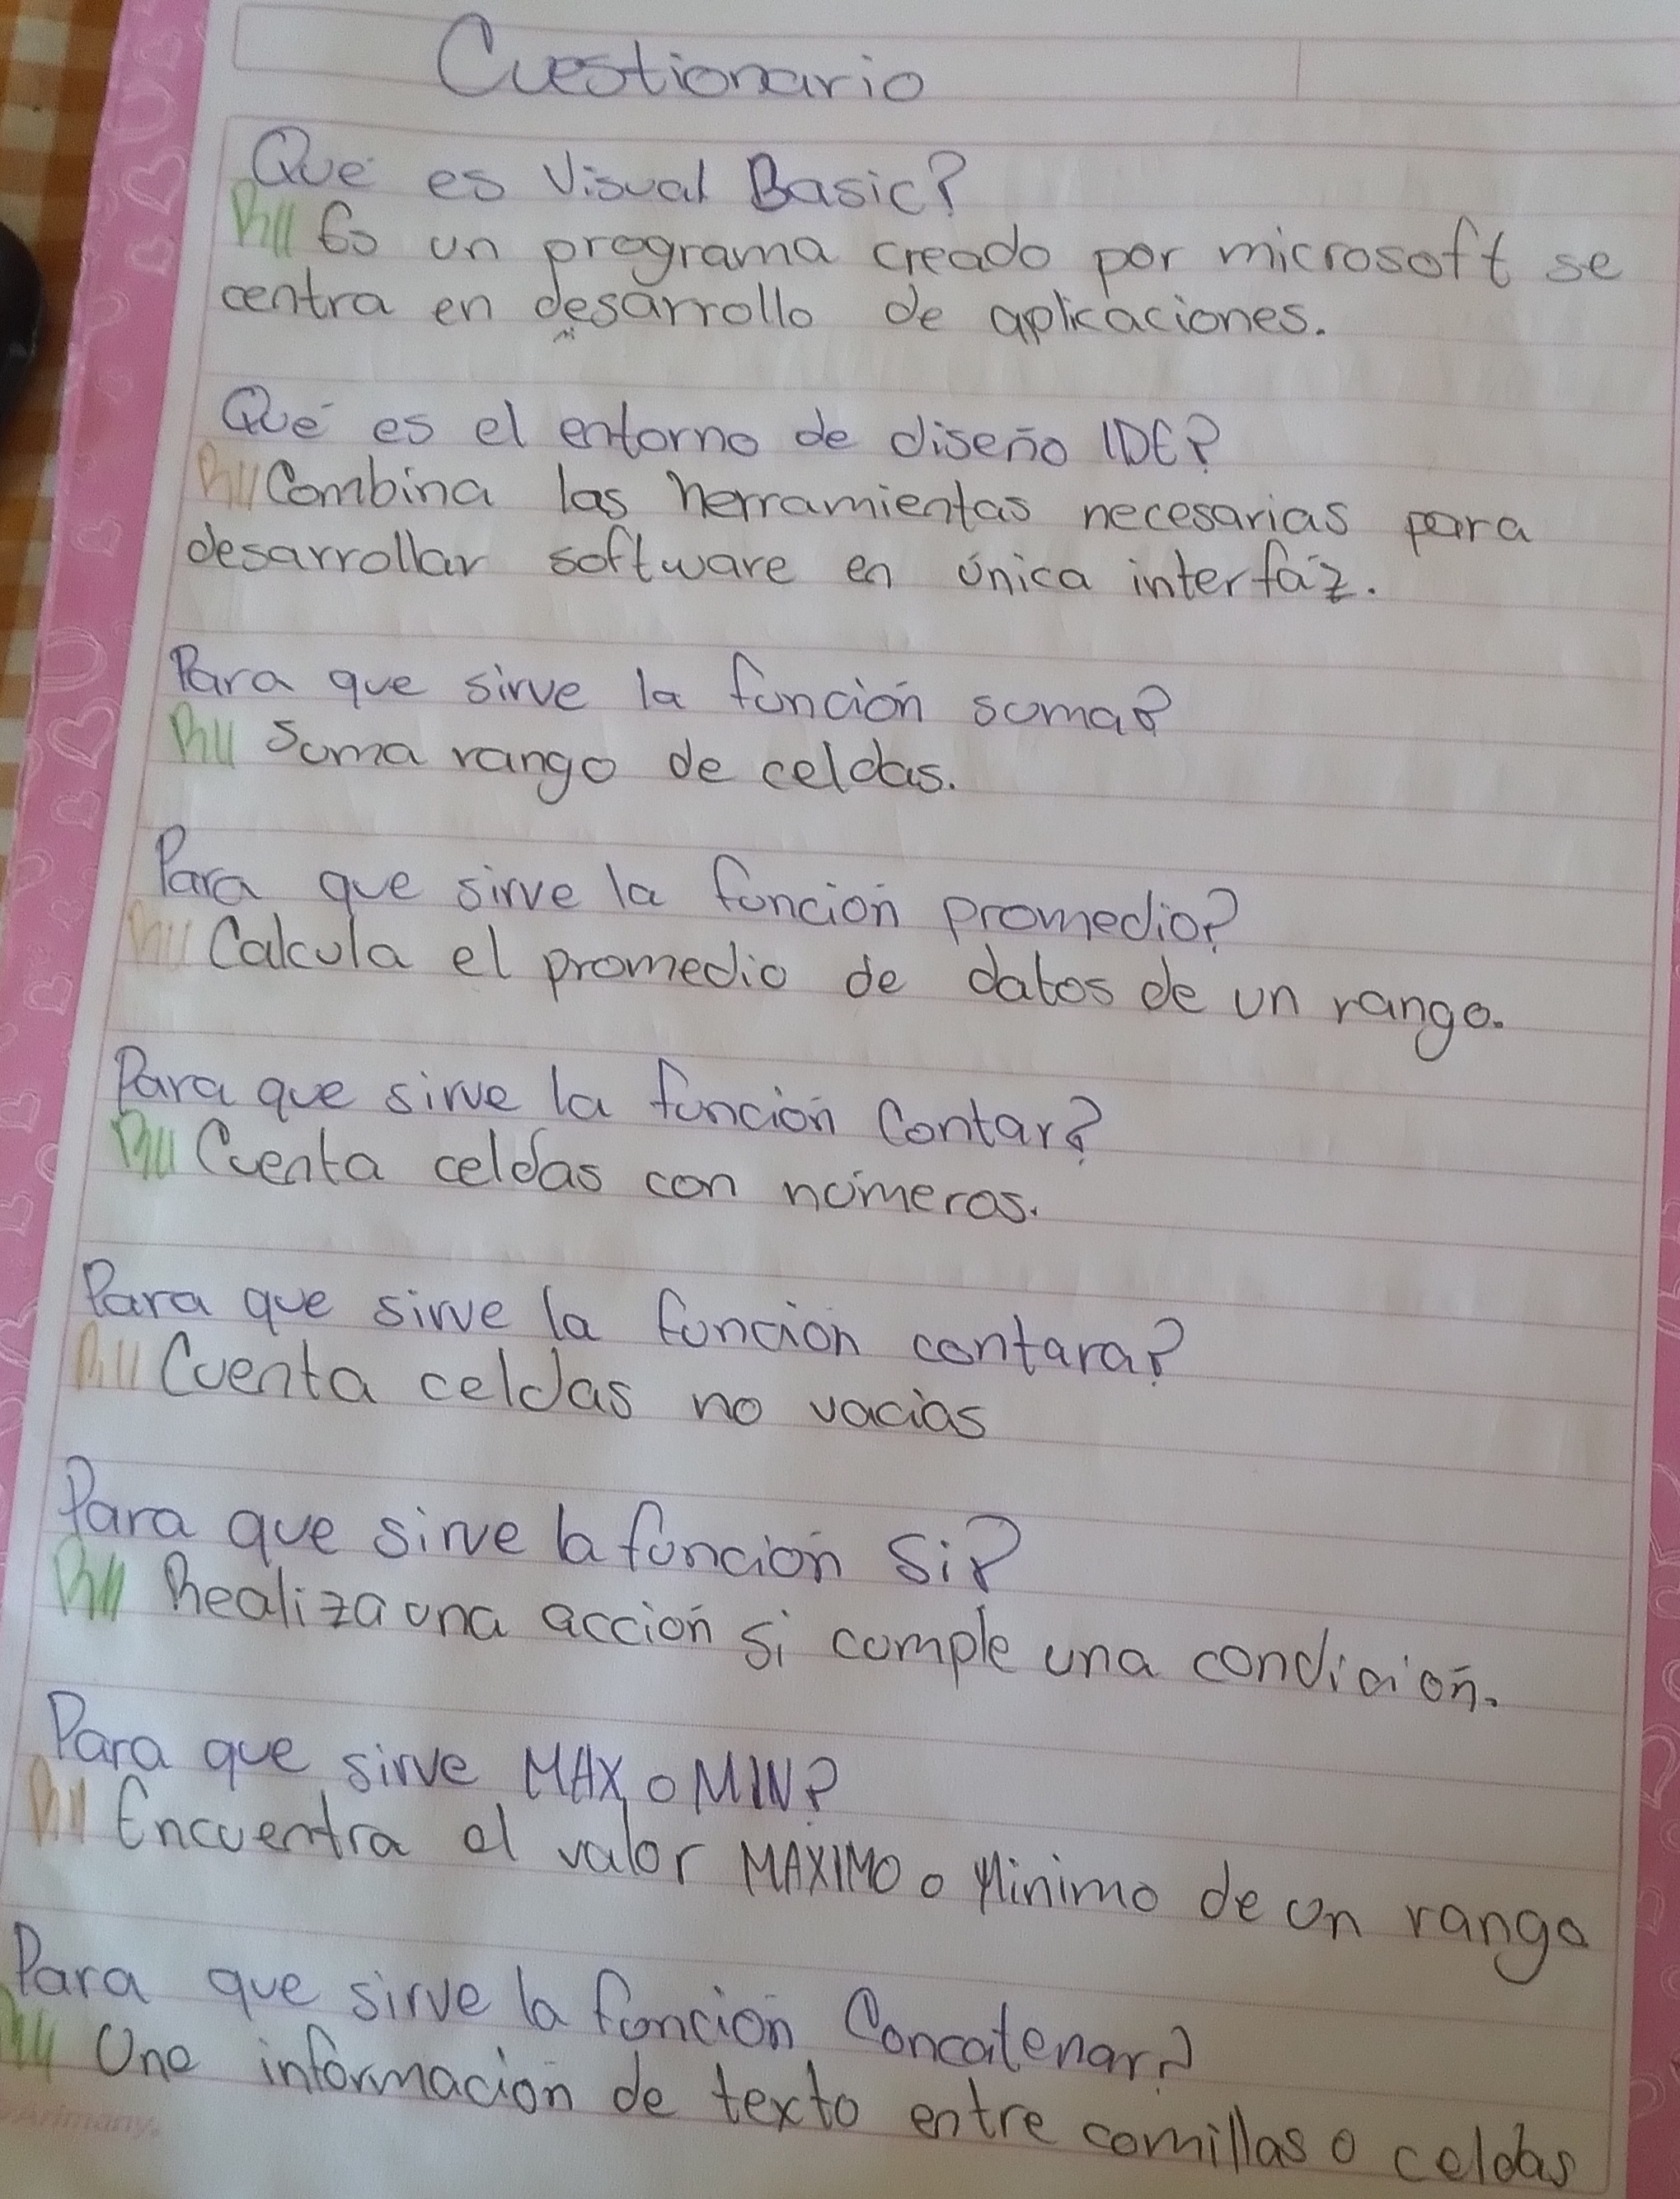 Cuestionario
Que es Visual Basic?
R// Es un programa creado por microsoft se
centra en desarrollo de aplicaciones.
Qué es el entorno de diseño IDE?
R// Combina las herramientas necesarias para
desarrollar software en única interfáz.
Para que sirve la función suma?
R// Suma rango de celdas.
Para que sirve la función promedio?
R// Calcula el promedio de datos de un rango.
Para que sirve la función Contar?
R// Cuenta celdas con números.
Para que sirve la función contara?
R// Cuenta celdas no vacias
Para que sirve la función Si?
R// Realiza una acción si cumple una condición.
Para que sirve MAX o MIN?
R// Encuentra el valor MAXIMO o Minimo de un rango
Para que sirve la función Concatenar?
R// Une información de texto entre comillas o celdas
Arimany.